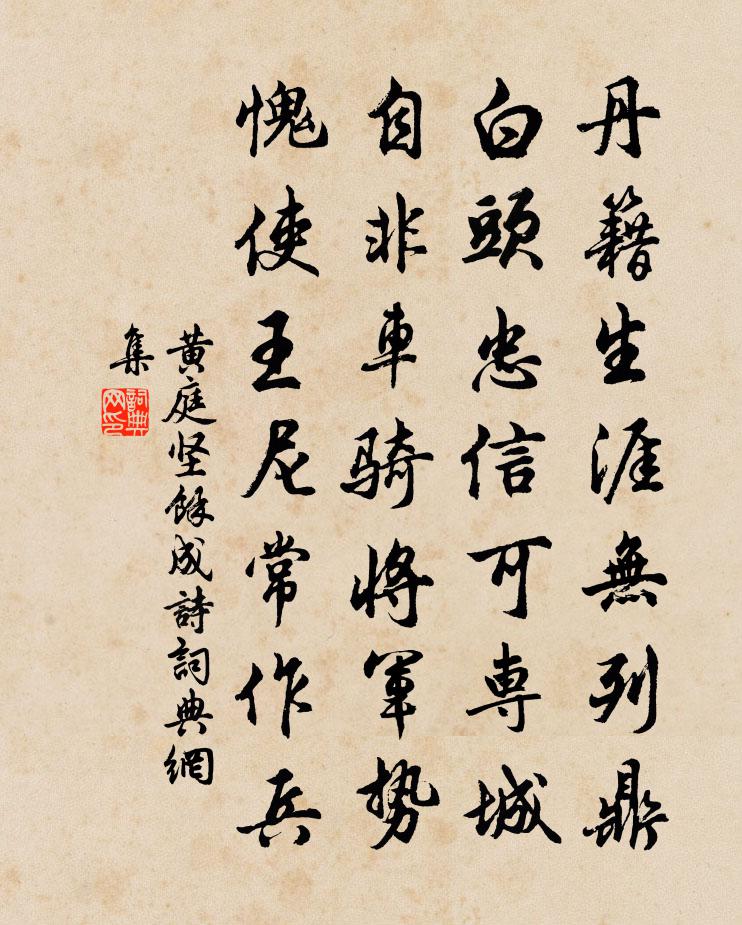 丹籍生涯無列鼎
白頭忠信可専城
自非車騎將軍勢
愧使王尼常作兵
黄庭坚餘成詩詞典網
集
詞典
网印